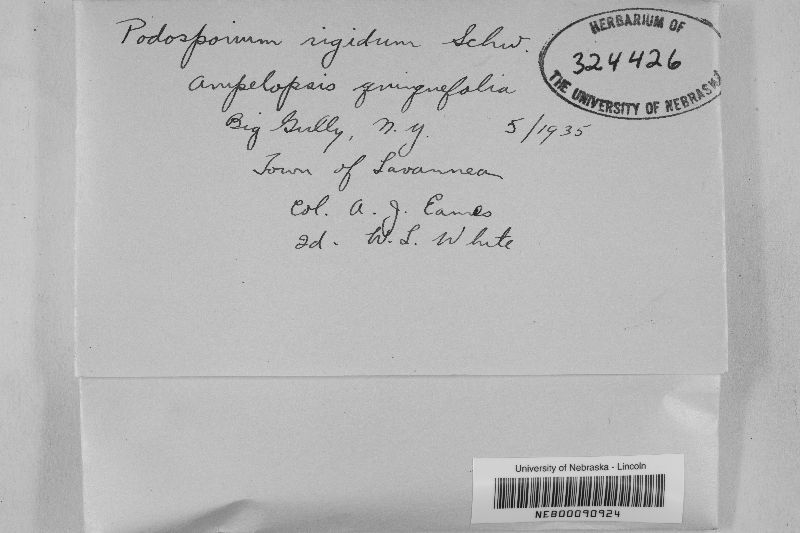 Podosporium rigidum Schw.
HERBARIUM OF
324426
THE UNIVERSITY OF NEBRASKA
Ampelopsis quinquefolia
Big Gully, N.Y. 5/1935
Town of Savannah
Col. A. J. Eames
Id. W. L. White
University of Nebraska - Lincoln
NEB00090924